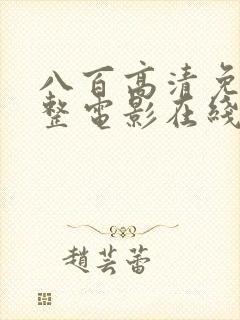 八百高清免
整电影在线
趙芸蕾